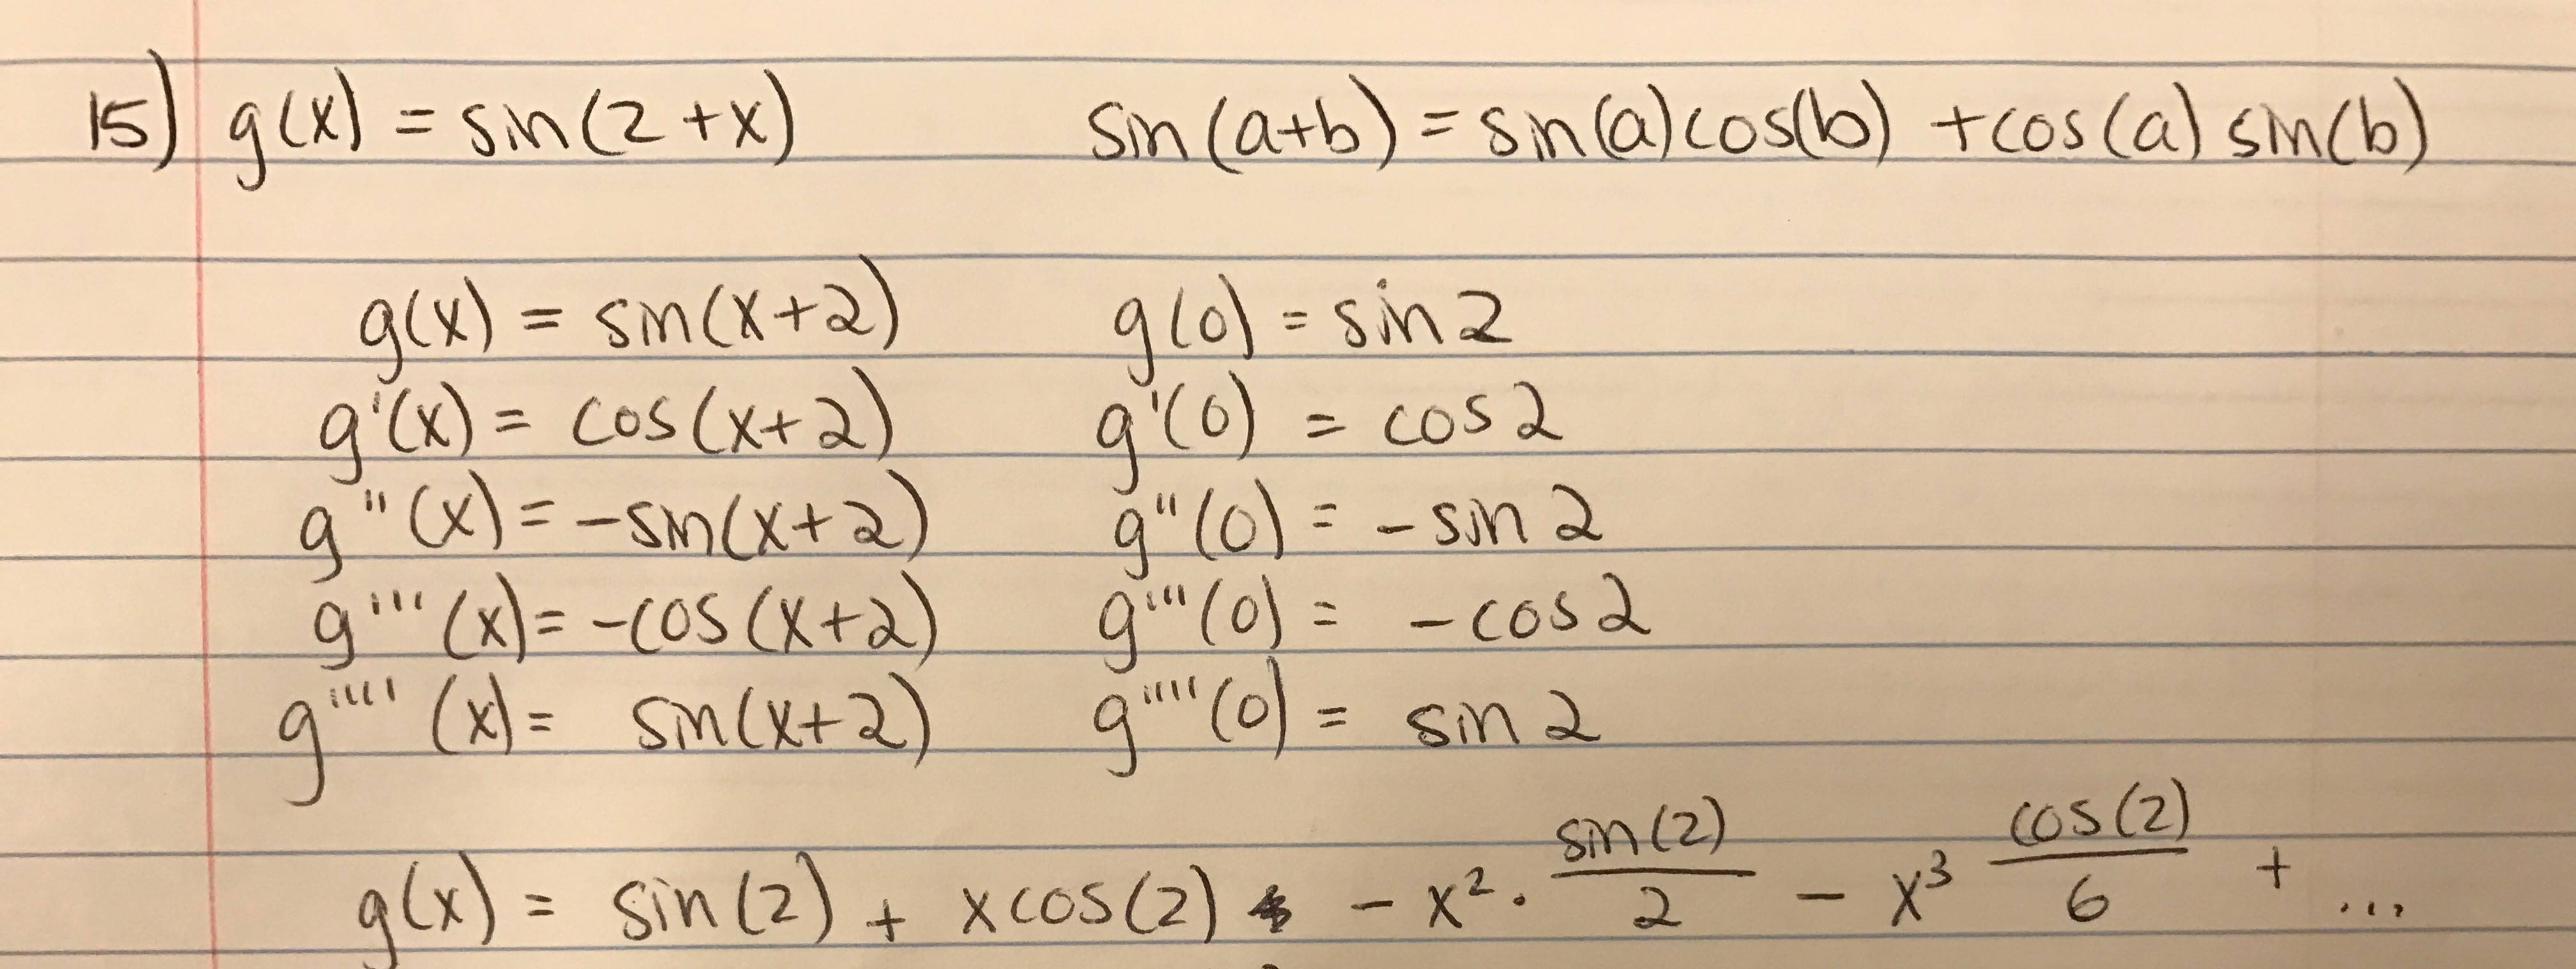 15) g(x) = sin(2+x) sin(a+b) = sin(a)cos(b) +cos(a) sin(b)
g(x) = sin(x+2) g(0) = sin2
g'(x) = cos(x+2) g'(0) = cos2
g''(x) = -sin(x+2) g''(0) = -sin2
g'''(x) = -cos(x+2) g'''(0) = -cos2
g''''(x) = sin(x+2) g''''(0) = sin2
g(x) = sin(2) + xcos(2) - x² · sin(2)/2 - x³ cos(2)/6 + ...